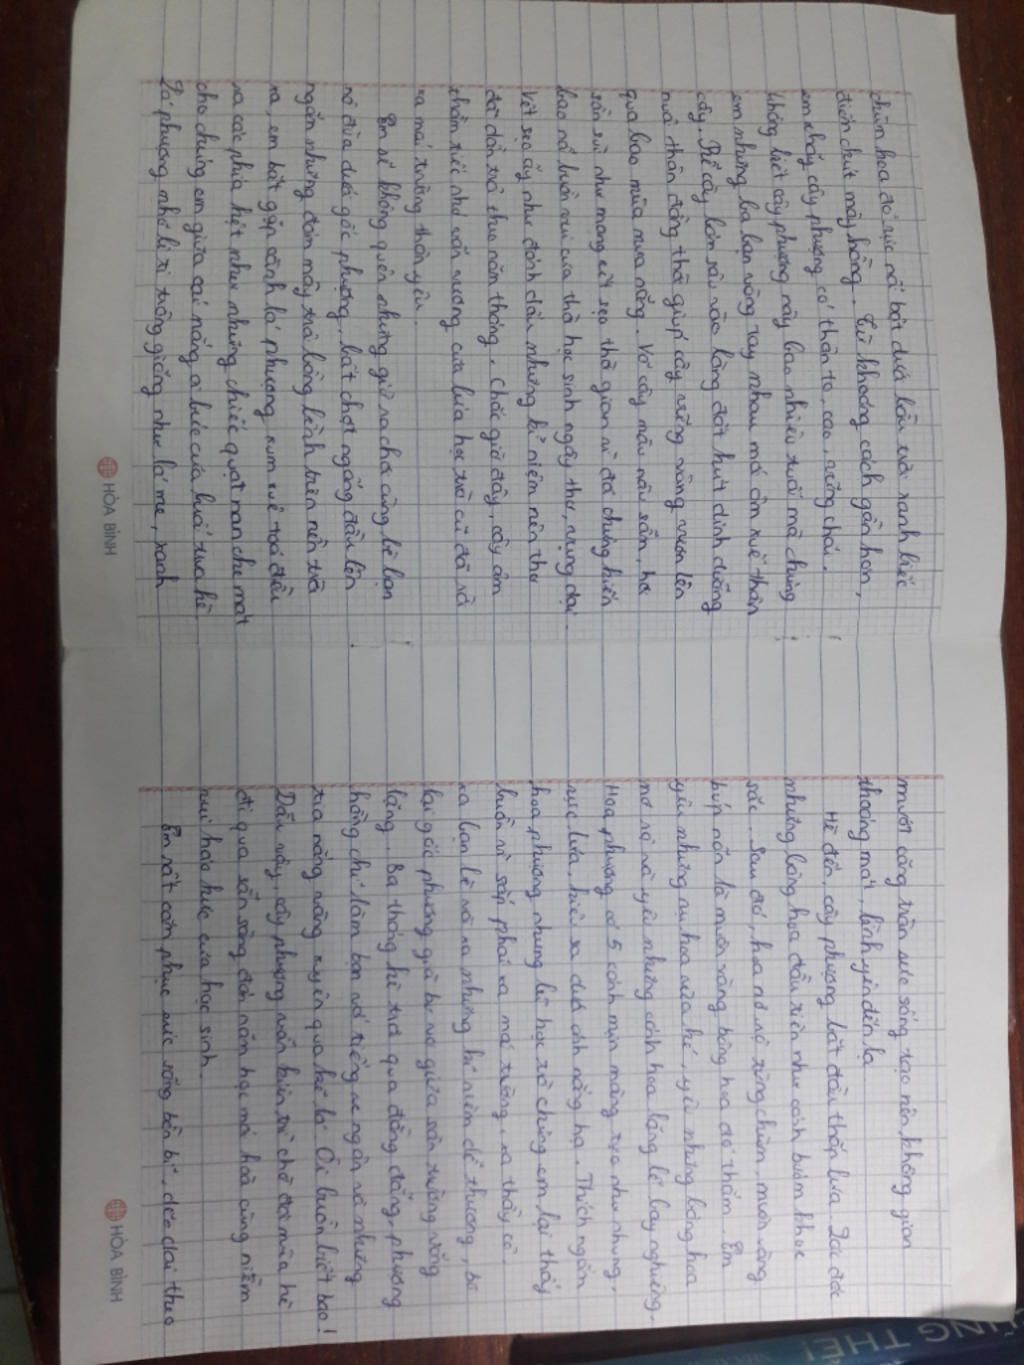 chùm hoa đỏ rực nổi bật dưới bầu trời xanh biếc
điểm chút mây hồng. Từ khoảng cách gần hơn,
em thấy cây phượng có thân to, cao, vững chãi.
không biết cây phượng này bao nhiêu tuổi mà chúng
em nhưng ba bạn vòng tay nhau mới ôm xuể thân
cây. Rễ cây lớn sâu vào lòng đất hút dinh dưỡng
nuôi thân đồng thời giúp cây vững vàng vươn lên
qua bao mùa mưa nắng. Vỏ cây màu nâu sẫm, hơi
sần sùi như mang vết sẹo thời gian vì đã chứng kiến
bao nỗi buồn vui của thời học sinh ngây thơ, vụng dại.
Vết sẹo ấy như đánh dấu những kỉ niệm nên thơ
đã dần trôi theo năm tháng. Chắc giờ đây, cây còn
thầm tiếc nhớ vấn vương của lứa học trò cũ đã rời
xa mái trường thân yêu.
Em sẽ không quên những giờ ra chơi cùng lũ bạn
nô đùa dưới gốc phượng, bất chợt ngẩng đầu lên
ngắm những đám mây trôi lững lờ trên nền trời
xa, em bắt gặp cành lá phượng xum xuê toả đều
ra các phía hệt như những chiếc quạt nan che mát
cho chúng em giữa cái nóng oi bức của buổi trưa hè.
Lá phượng nhỏ li ti trông giống như lá me, xanh
mướt căng tràn sức sống tạo nên không gian
thoáng mát, bình yên đến lạ
Hè đến, cây phượng bắt đầu thắp lửa. Lác đác
những bông hoa đầu tiên như cánh bướm khoe
sắc. Sau đó, hoa nở rộ từng chùm, muôn vàng
búp nõn là muôn vàng bông hoa đỏ thắm. Em
yêu những nụ hoa vừa hé, yêu những bông hoa
nở rộ và yêu những cánh hoa lặng lẽ bay nghiêng.
Hoa phượng có 5 cánh mịn màng tựa như nhung,
rực lửa, kiêu sa dưới ánh nắng hạ. Thích ngắm
hoa phượng nhưng lũ học trò chúng em lại thấy
buồn vì sắp phải xa mái trường, xa thầy cô.
xa bạn bè và xa những kỉ niệm dễ thương, bỏ
lại gốc phượng già bơ vơ giữa sân trường vắng
lặng. Ba tháng hè trôi qua đằng đẵng, phượng
hồng chỉ làm bạn với tiếng ve ngân và những
tia nắng vàng xuyên qua kẽ lá. Ôi buồn biết bao!
Dẫu vậy, cây phượng vẫn kiên trì chờ đợi mùa hè
đi qua sẵn sàng đón năm học mới hoà cùng niềm
vui háo hức của học sinh.
Em rất cảm phục sức sống bền bỉ, dẻo dai theo
HÒA BÌNH
HÒA BÌNH